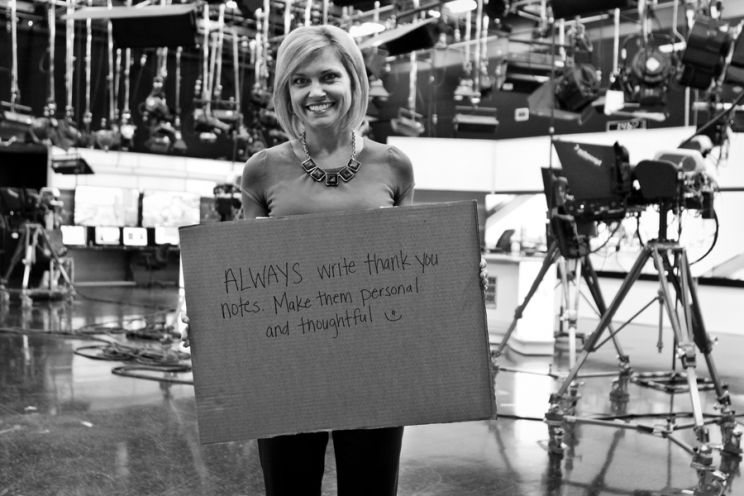 ALWAYS write thank you
notes. Make them personal
and thoughtful :)